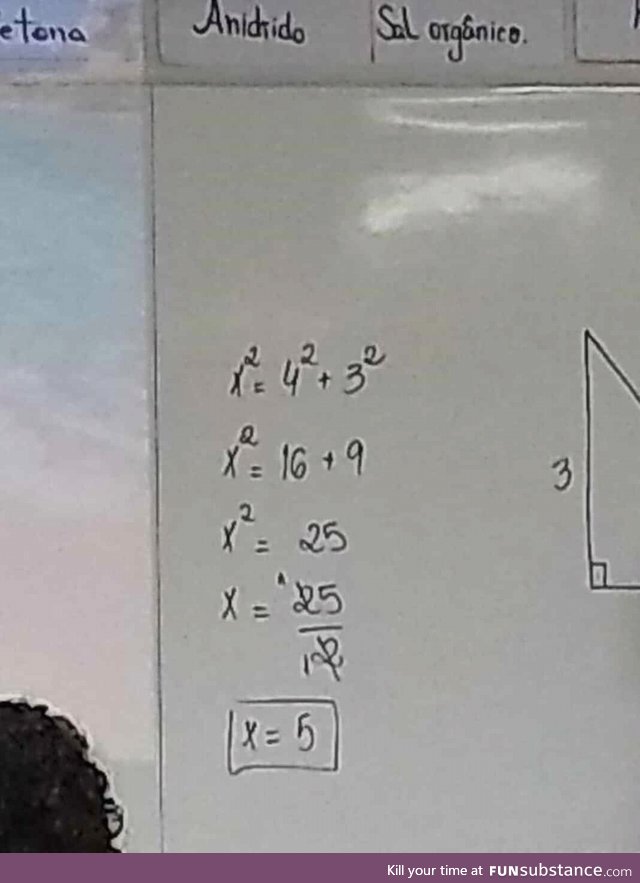 etona Anidrido Sal orgânico.
x² = 4² + 3²
x² = 16 + 9
3
x² = 25
x = 25
2
x = 5
Kill your time at FUNsubstance.com